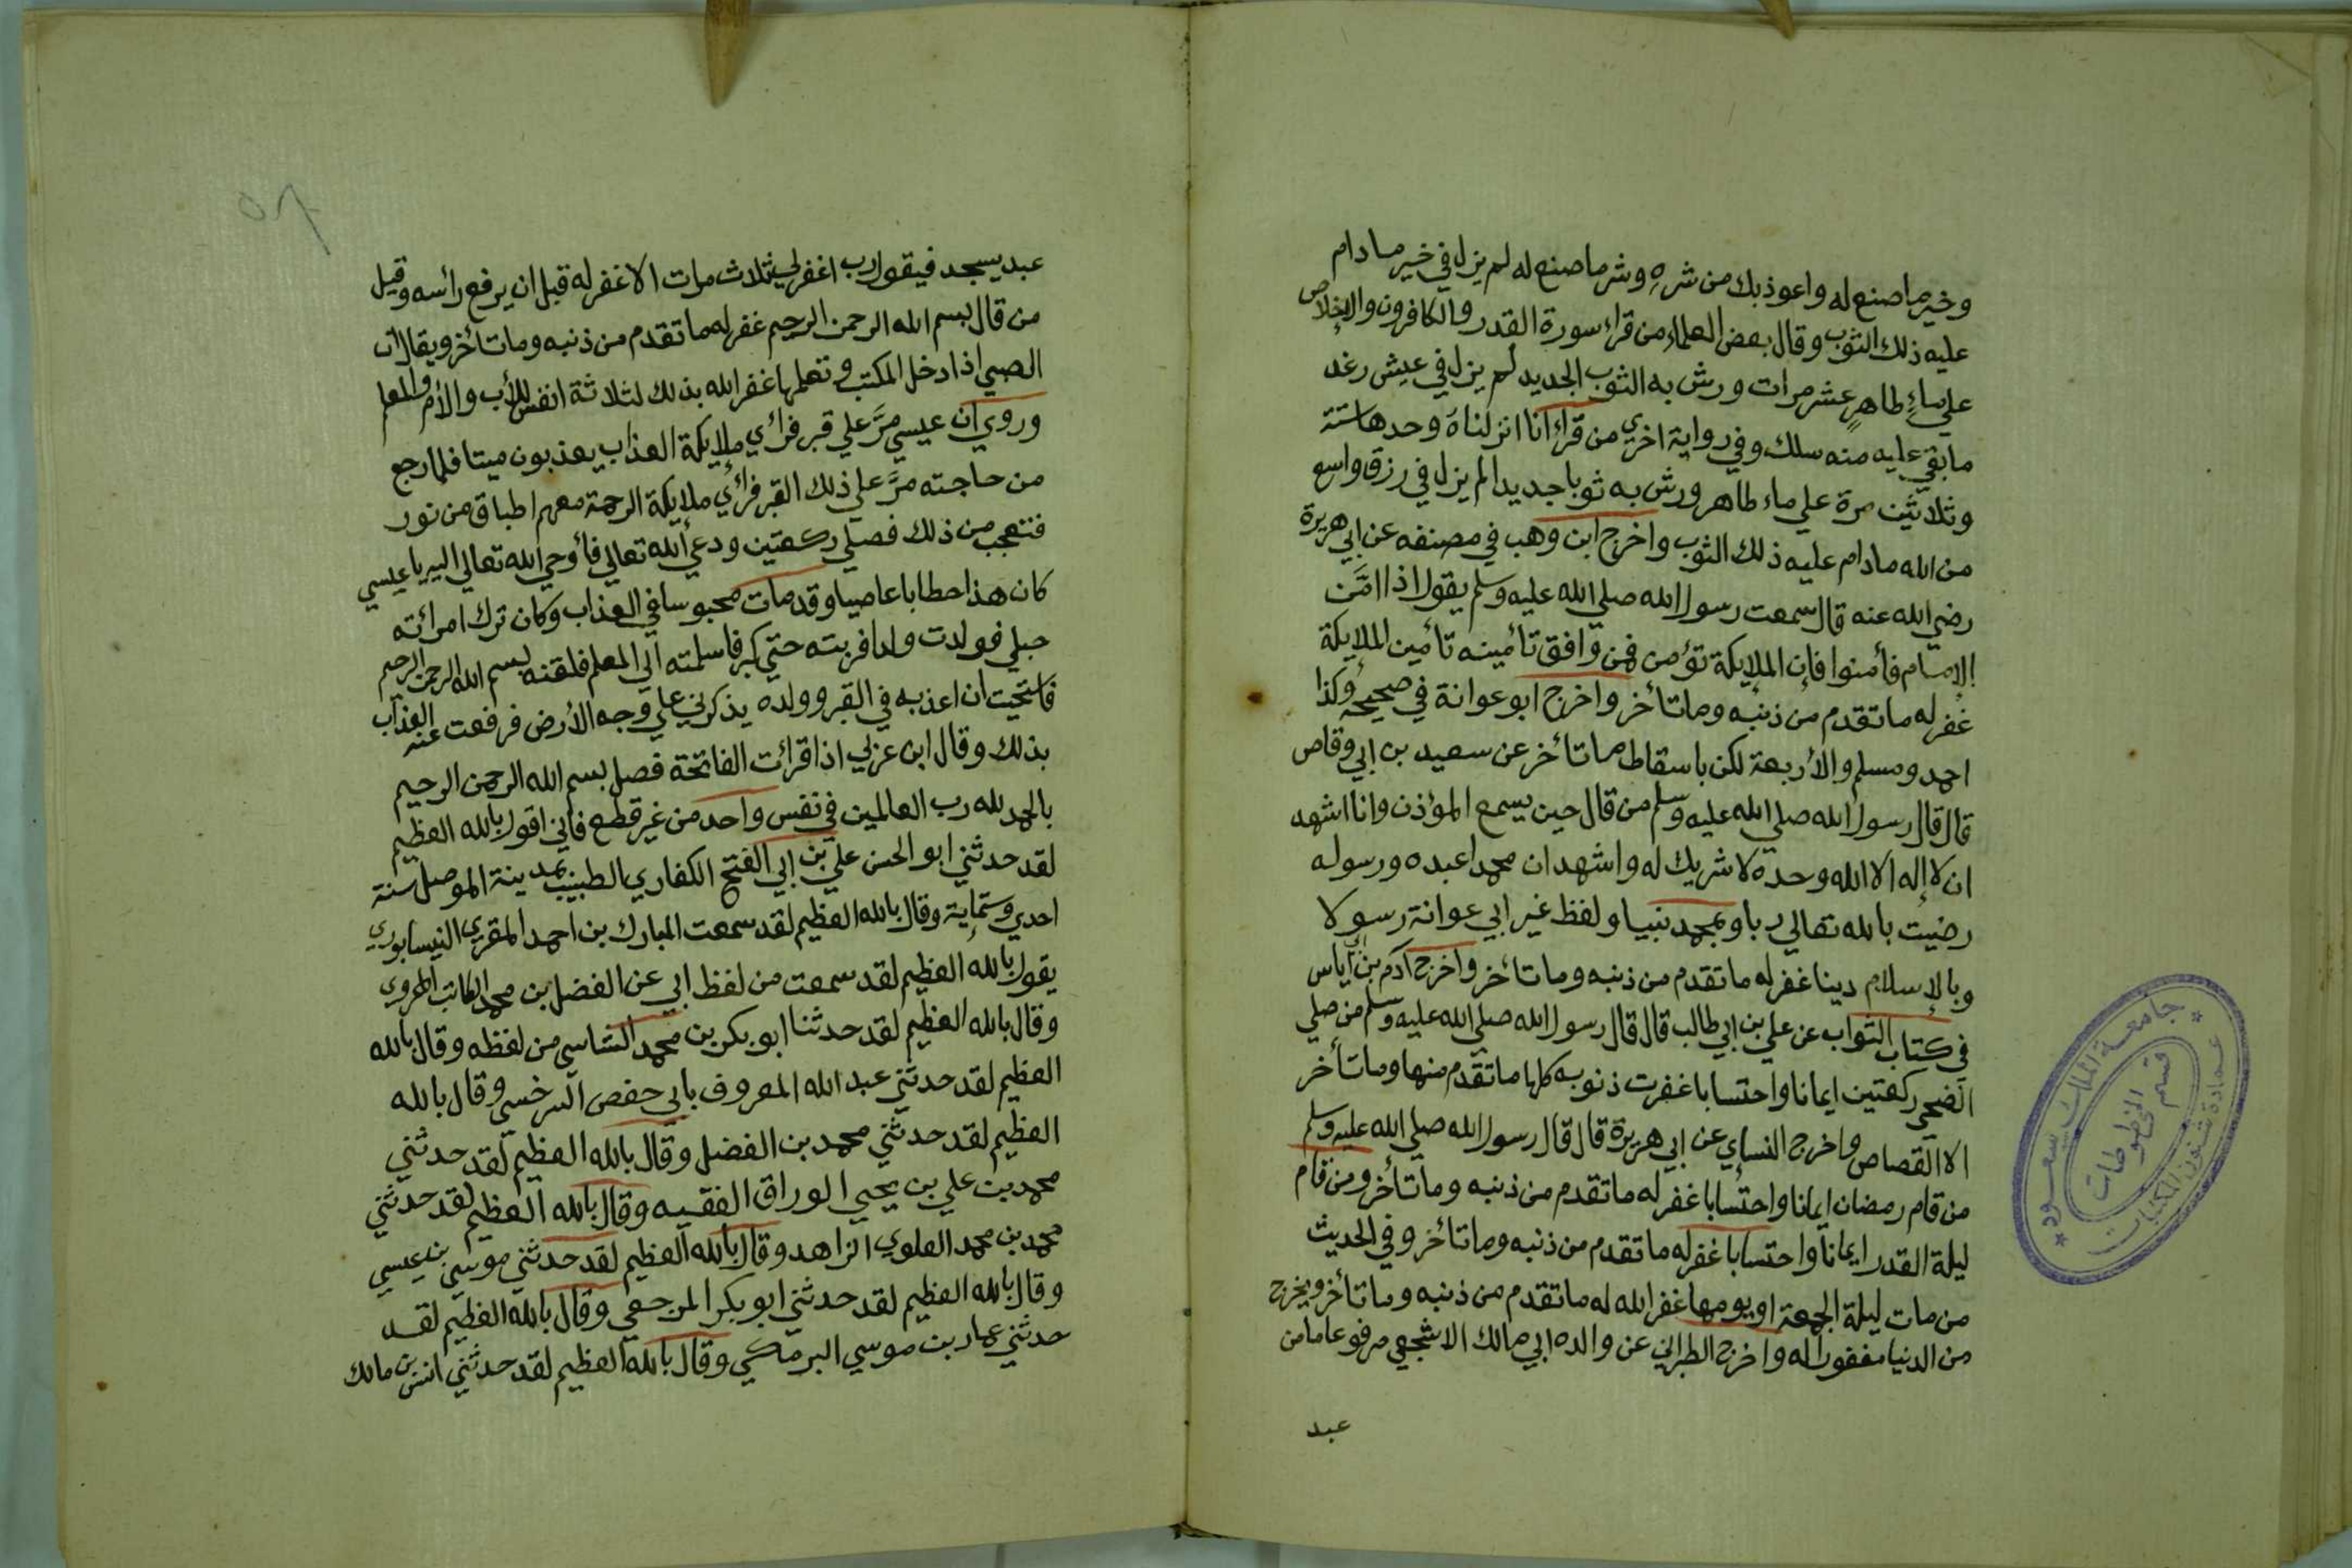 وخير ما صنع له واعوذ بك من شره وشر ما صنع له لم يزل في خير ما دام
عليه ذلك الثوب وقال بعض العلماء من قراء سورة القدر والكافرون والاخلاص
علي ماءٍ طاهرٍ عشر مرات ورش به الثوب الجديد لم يزل في عيش رغد
ما بقي عليه منه سلك وفي رواية اخري من قراء انا انزلناه وحدها ستة
وثلاثين مرة علي ماء طاهر ورش به ثوبا جديدا لم يزل في رزق واسع
من الله ما دام عليه ذلك الثوب واخرج ابن وهب في مصنفه عن ابي هريرة
رضي الله عنه قال سمعت رسول الله صلي الله عليه وسلم يقول اذا امَّن
الإمام فأمنوا فإن الملايكة تؤمن فمن وافق تأمينه تأمين الملايكة
غفر له ما تقدم من ذنبه وما تأخر واخرج ابو عوانة في صحيحه وكذا
احمد ومسلم والأربعة لكن باسقاط ما تأخر عن سعيد بن ابي وقاص
قال قال رسول الله صلي الله عليه وسلم من قال حين يسمع المؤذن وانا اشهد
ان لا إله الا الله وحده لا شريك له واشهد ان محمدا عبده ورسوله
رضيت بالله تعالي ربا وبمحمد نبيا ولفظ غير ابي عوانة رسولا
وبالإسلام دينا غفر له ما تقدم من ذنبه وما تأخر واخرج آدم بن أياس
في كتاب الثواب عن علي بن ابي طالب قال قال رسول الله صلي الله عليه وسلم من صلي
الضحي ركعتين ايمانا واحتسابا غفرت ذنوبه كلها ما تقدم منها وما تأخر
الا القصاص واخرج النساي عن ابي هريرة قال قال رسول الله صلي الله عليه وسلم
من قام رمضان ايمانا واحتسابا غفر له ما تقدم من ذنبه وما تأخر ومن قام
ليلة القدر ايمانا واحتسابا غفر له ما تقدم من ذنبه وما تأخر وفي الحديث
من مات ليلة الجمعة او يومها غفر الله له ما تقدم من ذنبه وما تأخر ويخرج
من الدنيا مغفورا له واخرج الطبراني عن والده ابي مالك الاشجعي مرفوعا ما من
عبد
جامعة الملك سعود
عمادة شؤون المكتبات
قسم المخطوطات
عبد يسجد فيقول رب اغفر لي ثلاث مرات الا غفر له قبل ان يرفع رأسه وقيل
من قال بسم الله الرحمن الرحيم غفر له ما تقدم من ذنبه وما تأخر ويقال ان
الصبي اذا دخل المكتب وتعلمها غفر الله بذلك لثلاثة انفس للأب والأم والمعلم
وروي ان عيسي مرَّ علي قبر فرأي ملايكة العذاب يعذبون ميتا فلما رجع
من حاجته مرَّ علي ذلك القبر فرأي ملايكة الرحمة معهم اطباق من نور
فتعجب من ذلك فصلي ركعتين ودعي الله تعالي فأوحي الله تعالي اليه يا عيسي
كان هذا حطابا عاصيا وقد مات محبوسا في العذاب وكان ترك امرأته
حبلي فولدت ولدا فربته حتي كبر فاسلمته الي المعلم فلقنه بسم الله الرحمن الرحيم
فاستحيت ان اعذبه في القبر وولده يذكرني علي وجه الأرض فرفعت عنه العذاب
بذلك وقال ابن عربي اذا قرأت الفاتحة فصل بسم الله الرحمن الرحيم
بالحمد لله رب العالمين في نفس واحد من غير قطع فاني اقول بالله العظيم
لقد حدثني ابو الحسن علي بن ابي الفتح الكفاري الطبيب بمدينة الموصل سنة
احدي وستماية وقال بالله العظيم لقد سمعت المبارك بن احمد المقري النيسابوري
يقول بالله العظيم لقد سمعت من لفظ ابي عن الفضل بن محمد الكاتب الهروي
وقال بالله العظيم لقد حدثنا ابو بكر بن محمد الشاسي من لفظه وقال بالله
العظيم لقد حدثني عبد الله المعروف بابي حفص السرخسي وقال بالله
العظيم لقد حدثني محمد بن الفضل وقال بالله العظيم لقد حدثني
محمد بن علي بن يحيي الوراق الفقيه وقال بالله العظيم لقد حدثني
محمد بن محمد العلوي الزاهد وقال بالله العظيم لقد حدثني موسي بن عيسي
وقال بالله العظيم لقد حدثني ابو بكر المرجعي وقال بالله العظيم لقد
حدثني عمار بن موسي البرمكي وقال بالله العظيم لقد حدثني انس بن مالك